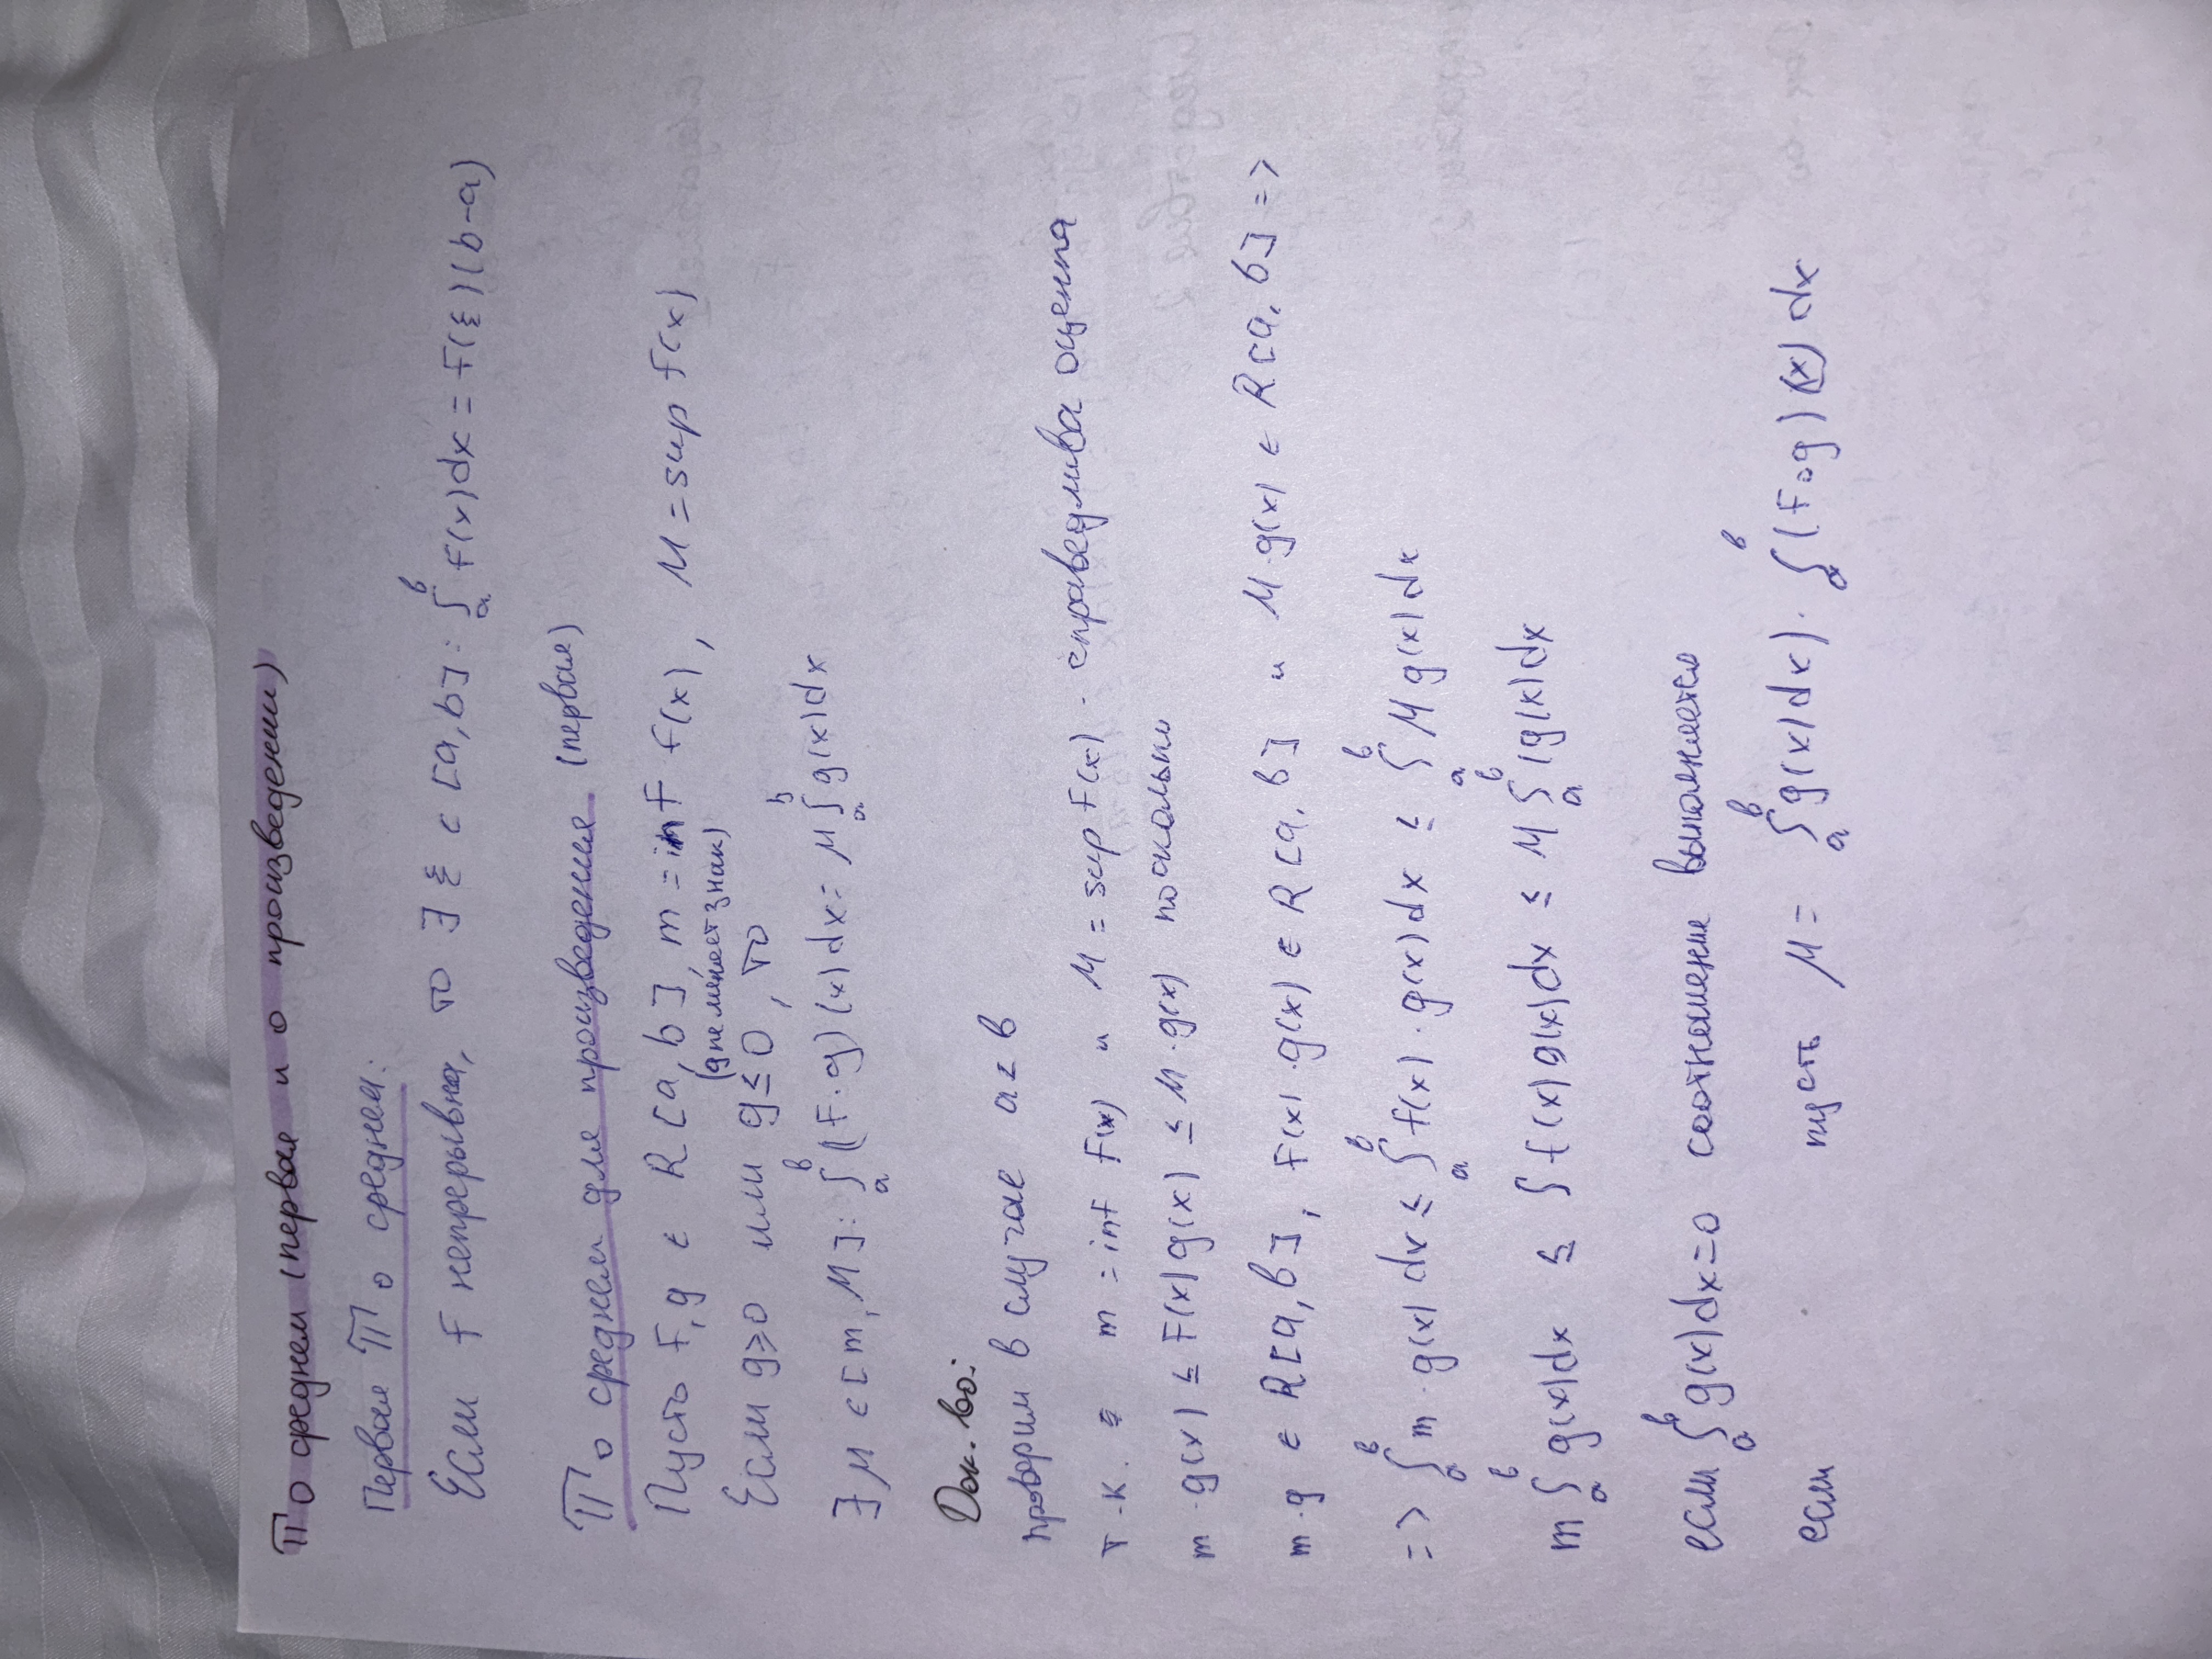 П о среднем (первая и о произведении)
Первая П о среднем:
Если f непрерывна, то ∃ ξ ∈ [a,b]: ∫ₐᵇ f(x)dx = f(ξ)(b-a)
П о среднем для произведения (первая)
Пусть f,g ∈ R[a,b], m = inf f(x), M = sup f(x)
(g не меняет знак)
Если g≥0 или g≤0, то
∃ μ ∈ [m, M]: ∫ₐᵇ (f·g)(x)dx = μ ∫ₐᵇ g(x)dx
Док-во:
проверим в случае a≤b
т.к. m = inf f(x) и M = sup f(x) - справедлива оценка
m·g(x) ≤ f(x)g(x) ≤ M·g(x) поскольку
m·g ∈ R[a,b], f(x)·g(x) ∈ R[a,b] и M·g(x) ∈ R[a,b] =>
=> ∫ₐᵇ m·g(x) dx ≤ ∫ₐᵇ f(x)·g(x)dx ≤ ∫ₐᵇ M g(x)dx
m ∫ₐᵇ g(x)dx ≤ ∫ f(x)g(x)dx ≤ M ∫ₐᵇ (g(x)dx
если ∫ₐᵇ g(x)dx=0 соотношение выполняется
если пусть μ = ∫ₐᵇ g(x)dx)· ∫ₐᵇ (f∘g)(x) dx